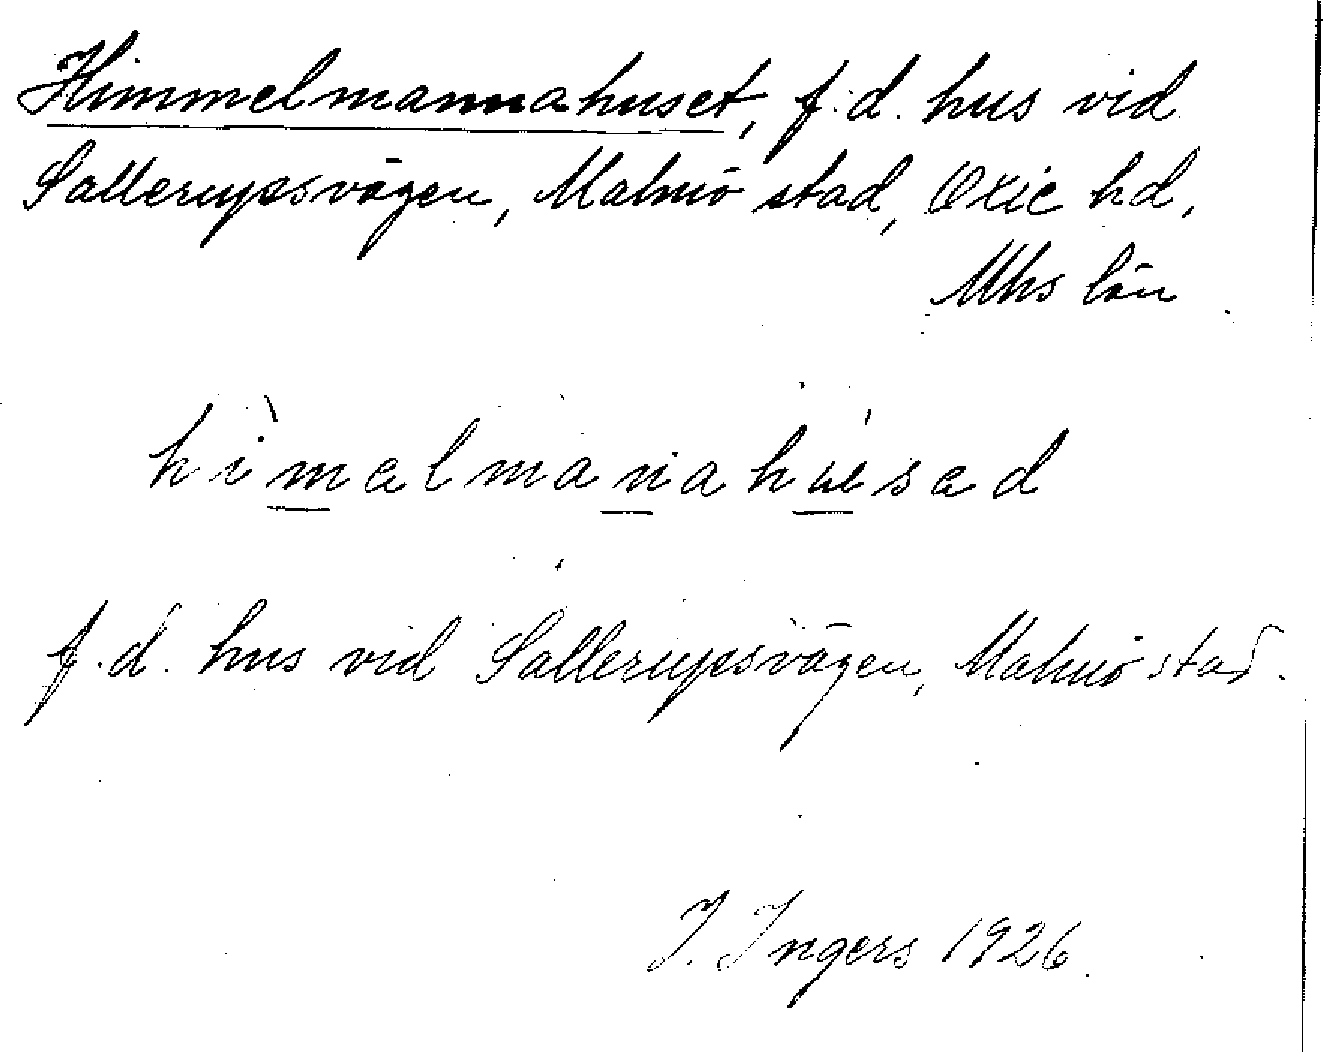 Himmelmannahuset, f.d. hus vid
Sallerupsvägen, Malmö stad, Oxie hd,
Mhs län
hìmalmanahúsad
f.d. hus vid Sallerupsvägen, Malmö stad.
I. Ingers 1926.